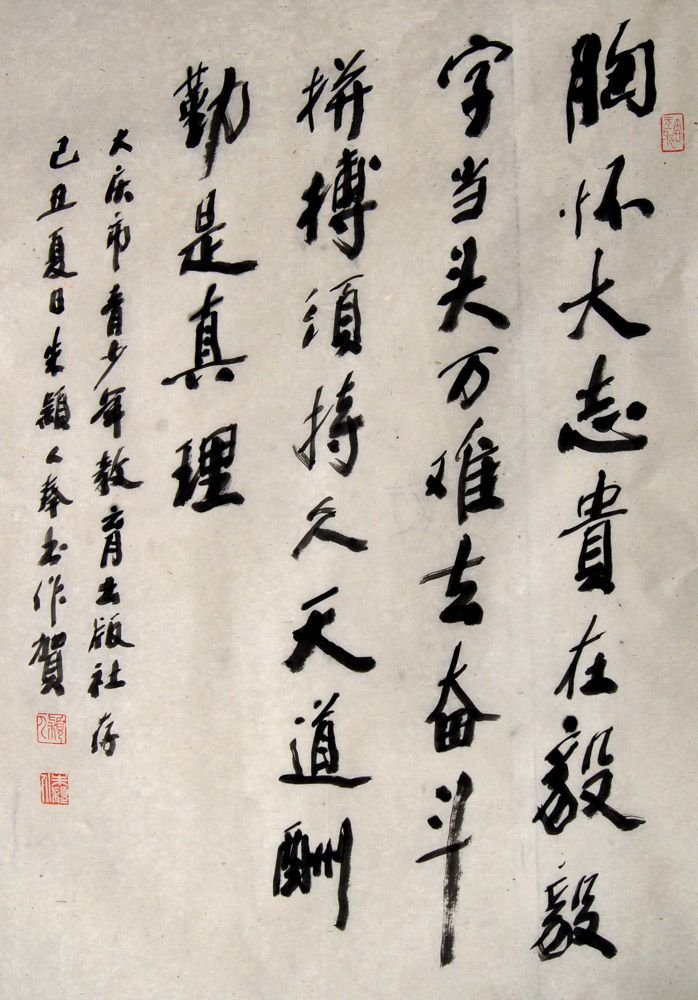 胸怀大志貴在毅毅
字当头万难去奋斗
拼搏須持久天道酬
勤是真理
大庆市青少年教育出版社存
己丑夏日朱颖人奉书作賀